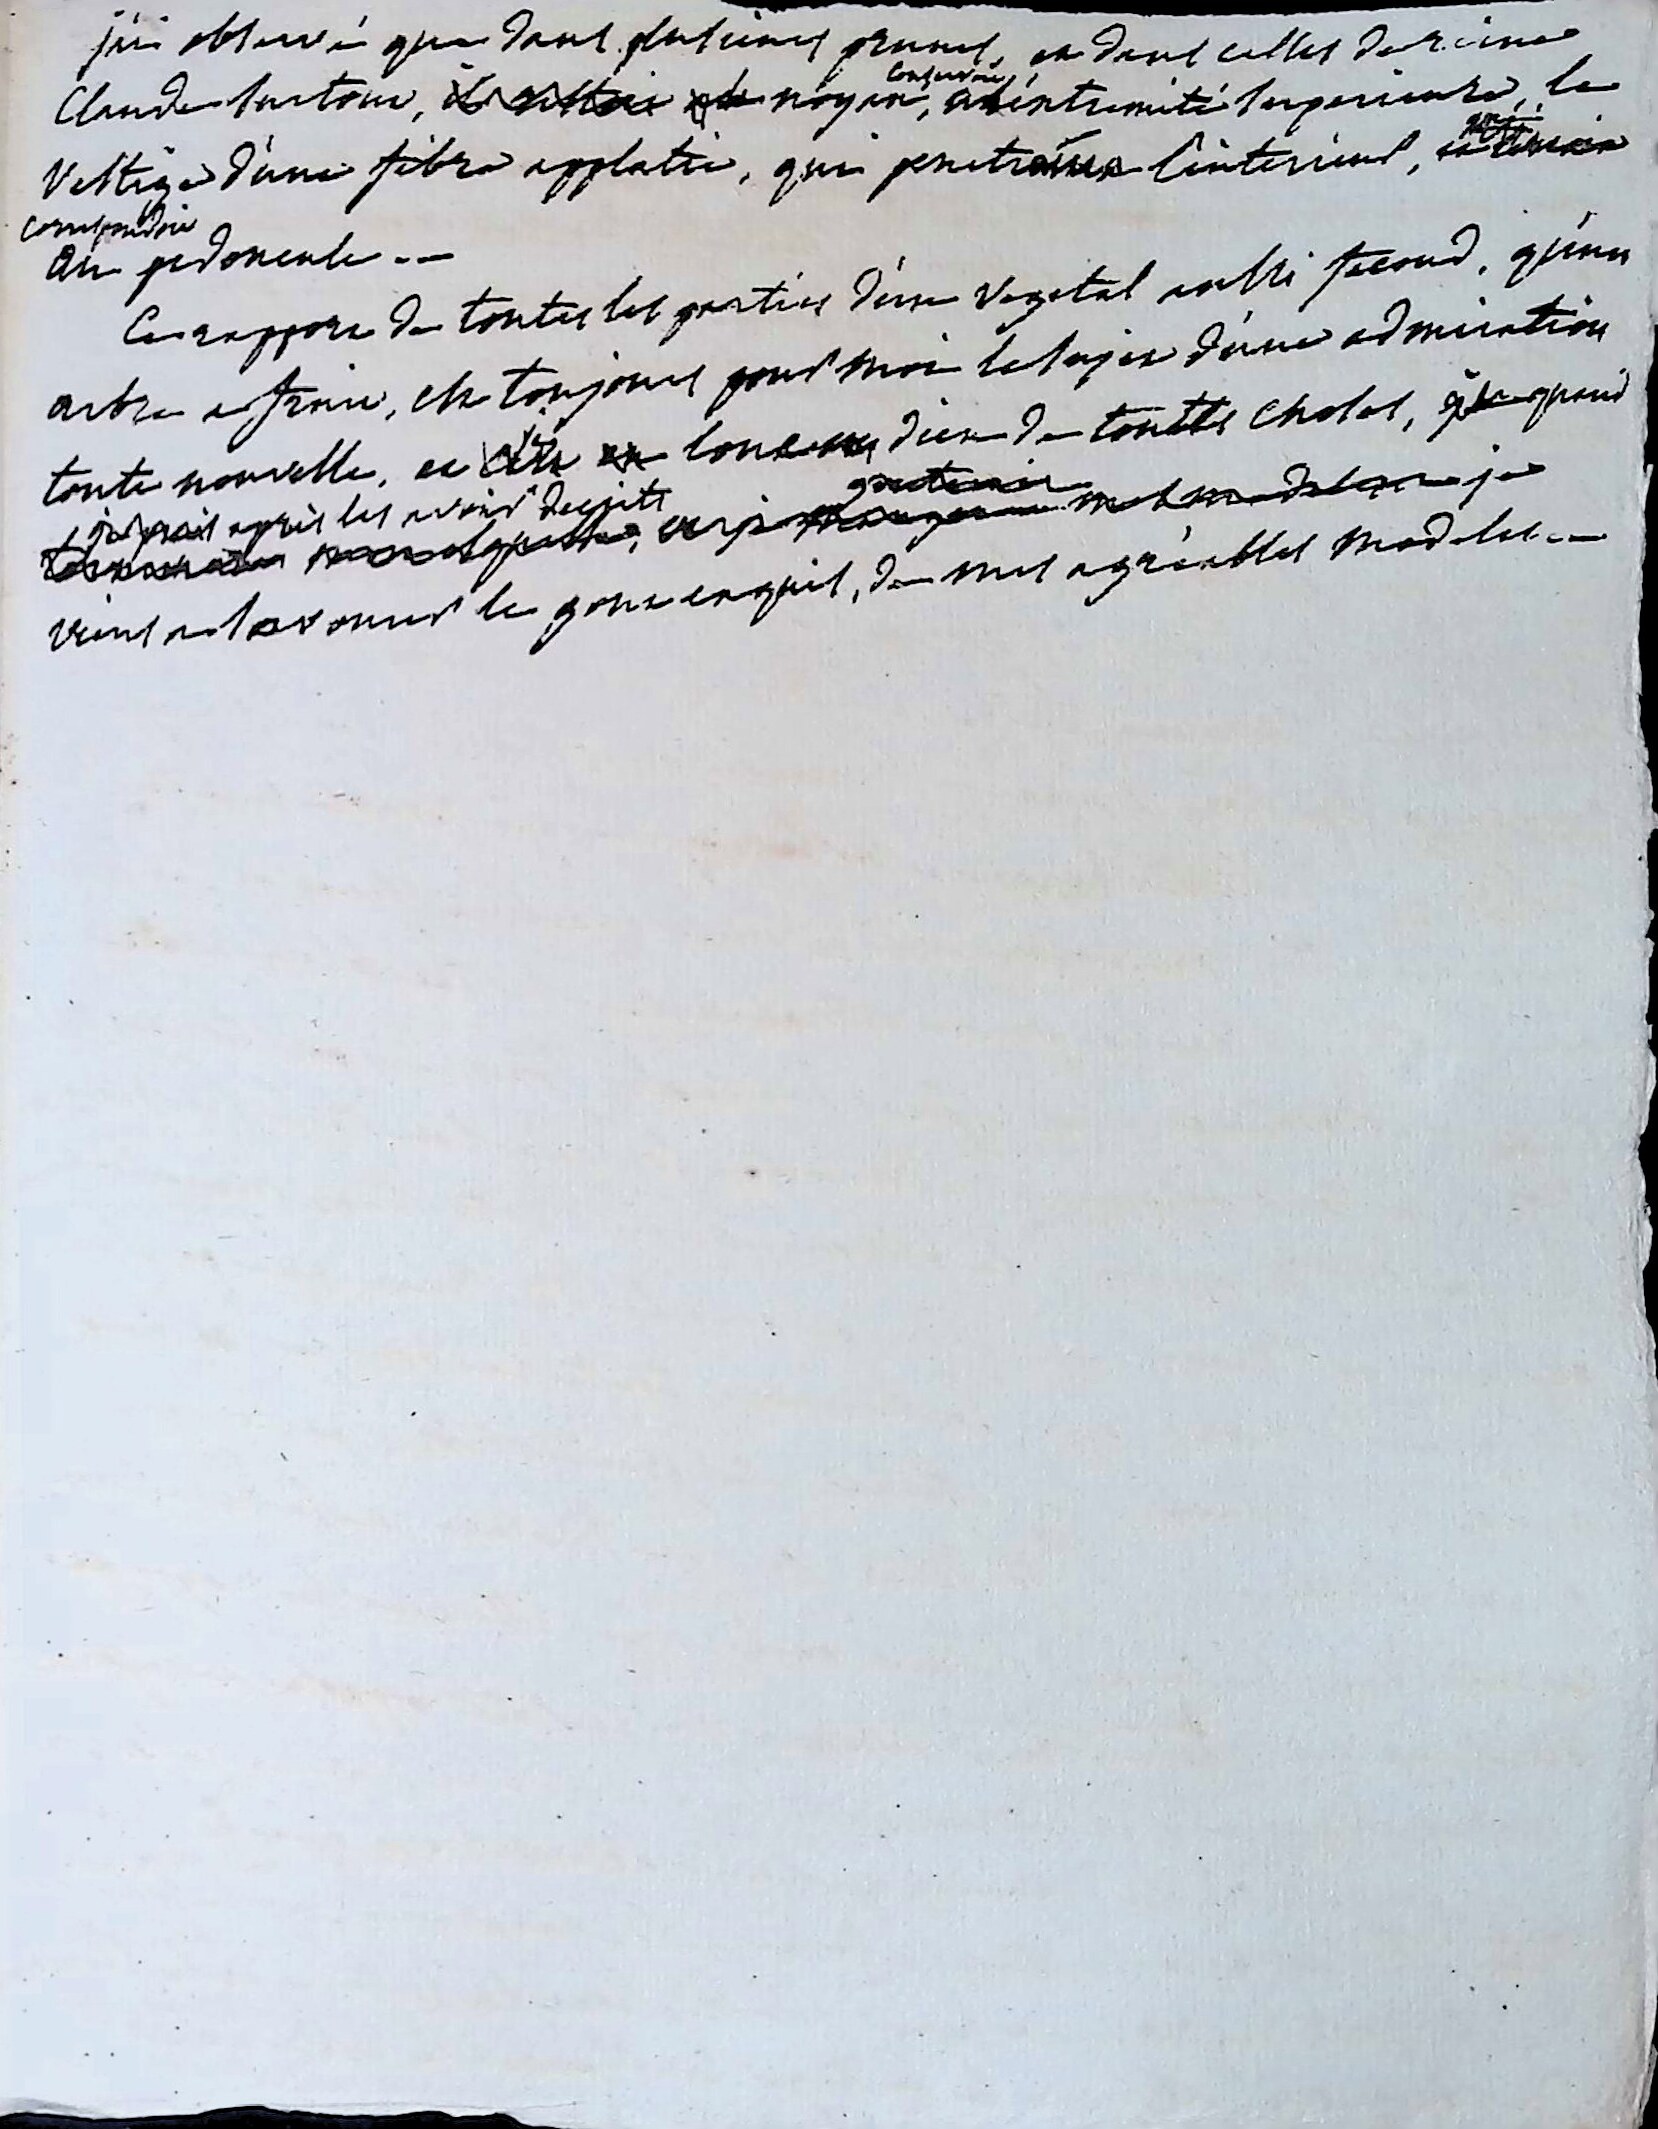 j'ai observé que dans plusieurs prunes, et dans celles de reine
Claude surtout, le noyau, conservoit, a l'extremité superieure, le
vestige d'une fibre applatie, qui penetroit l'interieur, et
correspondoit
au pedoncule --
Ce rapport de toutes les parties d'un vegetal aussi fecond, qu'un
arbre a fruit, est toujours pour moi le sujet d'une admiration
toute nouvelle, et je loue dieu de toutes choses, quand
après les avoir decrits
gouter
mes modeles je
viens a savourer le gout exquis, de mes agréables modeles --